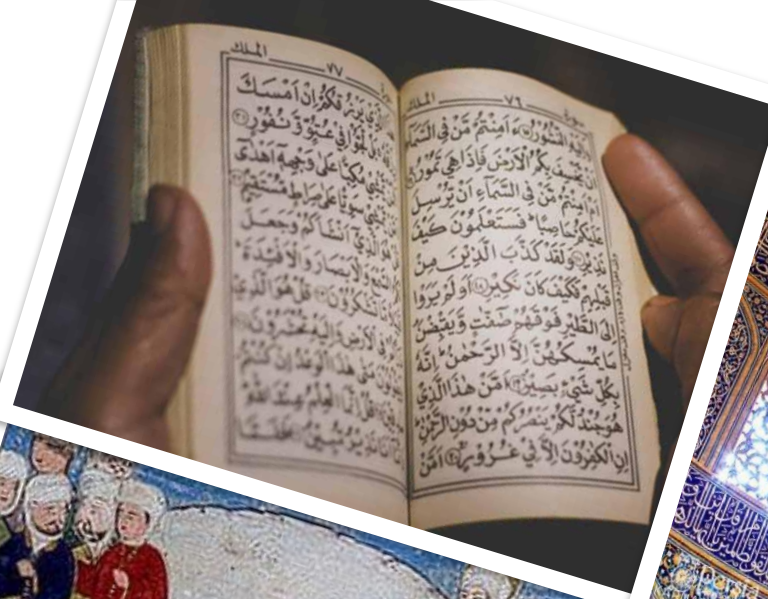 سورة ٧٦ الملك
النُّشُوْرُ ءَاَمِنْتُمْ مَّنْ فِي السَّمَآءِ
اَنْ يَّخْسِفَ بِكُمُ الْاَرْضَ فَاِذَا هِيَ تَمُوْرُ
اَمْ اَمِنْتُمْ مَّنْ فِي السَّمَآءِ اَنْ يُّرْسِلَ
عَلَيْكُمْ حَاصِبًا ؕ فَسَتَعْلَمُوْنَ كَيْفَ
نَذِيْرِ وَلَقَدْ كَذَّبَ الَّذِيْنَ مِنْ
قَبْلِهِمْ فَكَيْفَ كَانَ نَكِيْرِ اَوَلَمْ يَرَوْا
اِلَى الطَّيْرِ فَوْقَهُمْ صٰٓفّٰتٍ وَّيَقْبِضْنَ
مَا يُمْسِكُهُنَّ اِلَّا الرَّحْمٰنُ ؕ اِنَّهٗ
بِكُلِّ شَيْءٍۭ بَصِيْرٌ اَمَّنْ هٰذَا الَّذِيْ
هُوَ جُنْدٌ لَّكُمْ يَنْصُرُكُمْ مِّنْ دُوْنِ الرَّحْمٰنِ
اِنِ الْكٰفِرُوْنَ اِلَّا فِيْ غُرُوْرٍ اَمَّنْ
٧٧ الملك
يَرْزُقُكُمْ اِنْ اَمْسَكَ
بَلْ لَّجُّوْا فِيْ عُتُوٍّ وَّنُفُوْرٍ
يَّمْشِيْ مُكِبًّا عَلٰى وَجْهِهٖٓ اَهْدٰٓى
يَّمْشِيْ سَوِيًّا عَلٰى صِرَاطٍ مُّسْتَقِيْمٍ
هُوَ الَّذِيْٓ اَنْشَاَكُمْ وَجَعَلَ
السَّمْعَ وَالْاَبْصَارَ وَالْاَفْـِٕدَةَ
مَّا تَشْكُرُوْنَ قُلْ هُوَ الَّذِيْ
فِي الْاَرْضِ وَاِلَيْهِ تُحْشَرُوْنَ
مَتٰى هٰذَا الْوَعْدُ اِنْ كُنْتُمْ
قُلْ اِنَّمَا الْعِلْمُ عِنْدَ اللّٰهِ
اَنَا نَذِيْرٌ مُّبِيْنٌ فَلَمَّا